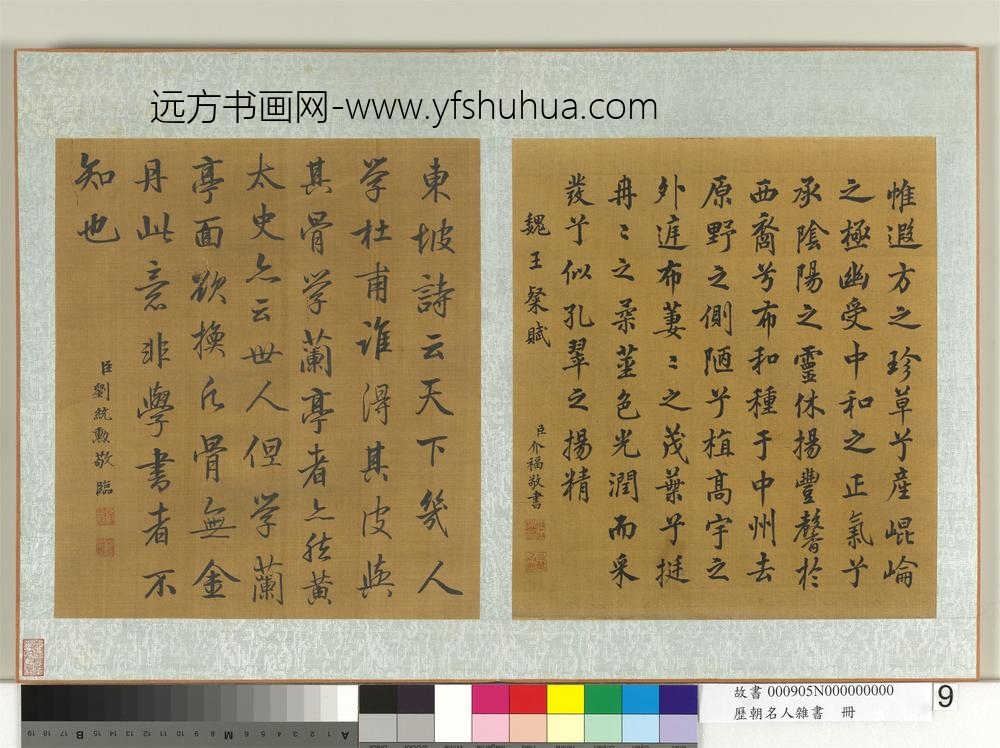 远方书画网-www.yfshuhua.com
惟遐方之珍草兮產崐崘
之極幽受中和之正氣兮
承陰陽之靈休揚豐馨於
西裔兮布和種于中州去
原野之側陋兮植髙宇之
外庭布萋〻之茂葉兮挺
冉〻之柔莖色光潤而采
發兮似孔翠之揚精
魏王粲賦
臣介福敬書
東坡詩云天下幾人
学杜甫誰得其皮與
其骨学蘭亭者亦然黃
太史亦云世人但学蘭
亭面欲換凡骨無金
丹此意非學書者不
知也
臣劉統勲敬臨
故書 000905N000000000
歷朝名人雜書 冊
9